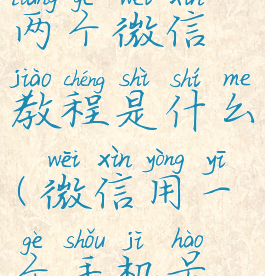 liǎng gè wēi xìn
两个微信
jiào chéng shì shí me
教程是什么
wēi xìn yòng yī
(微信用一
gè shǒu jī hào
个手机号